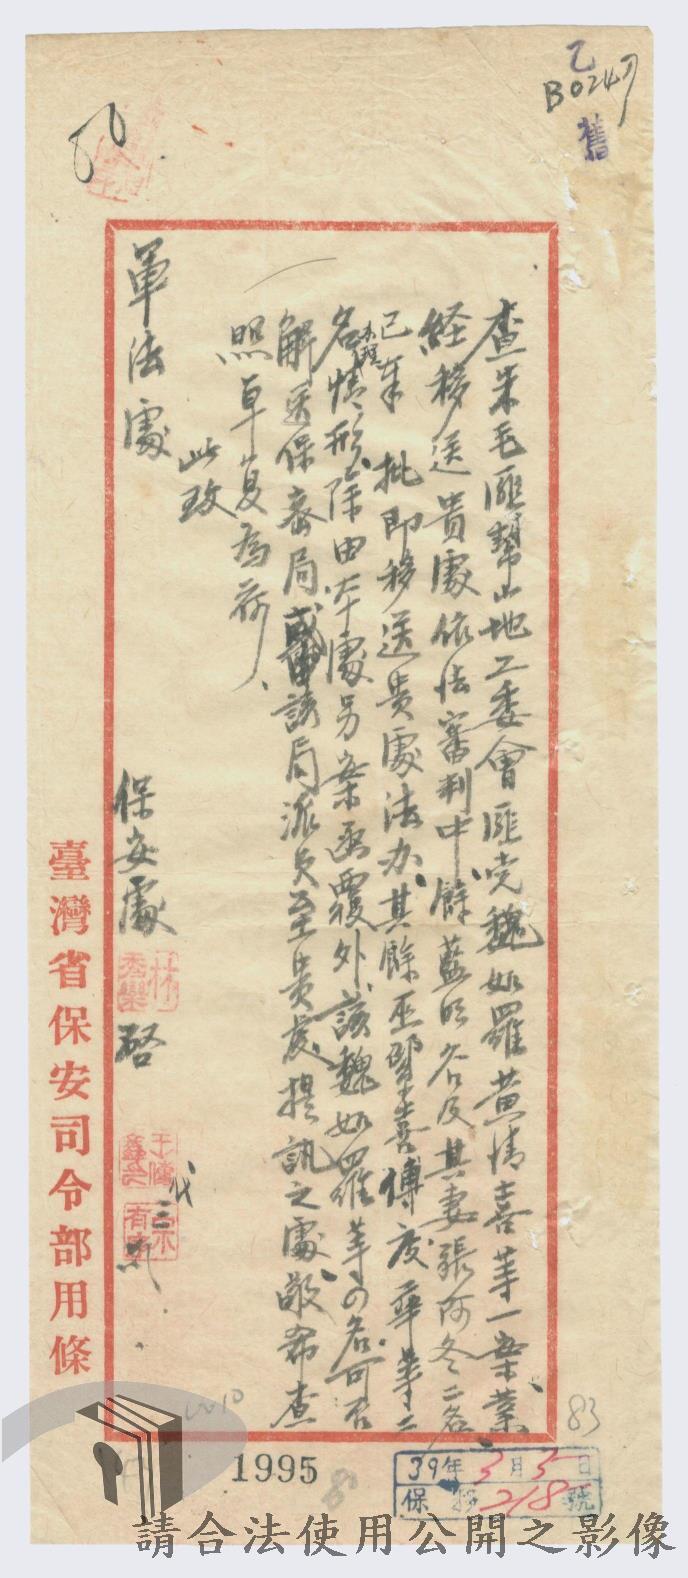 乙
B0247
舊
80
查朱毛匪幫山地工委會匪党魏如羅黃情喜等一案業
經移送貴處依法審判中餘藍明谷及其妻張阿冬二名
已奉批即移送貴處法办其餘巫聖喜傅度華等二
名办理情形除由本處另案函覆外該魏如羅等四名可否
解送保密局或由該局派員至貴處提訊之處敬希查
照卓复為荷
此致
軍法處
保安處 啓
臺灣省保安司令部用條
1995
83
39年3月5日
保 218號
請合法使用公開之影像